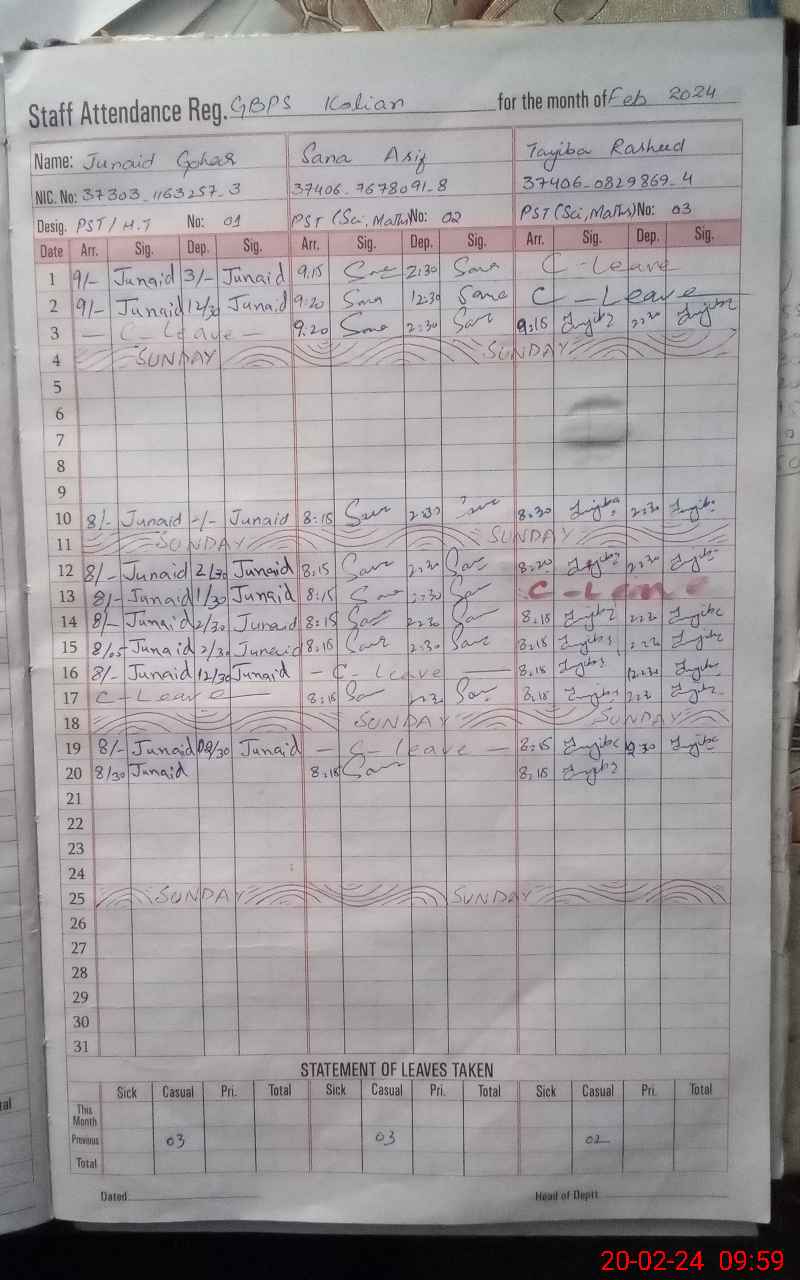 Staff Attendance Reg. GBPS Kolian for the month of Feb 2024
Name: Junaid Gohar Sana Asif Tayiba Rasheed
NIC. No: 37303-1163257-3 37406-7678091-8 37406-0829869-4
Desig. PST/H.T No: 01 PST (Sci, Maths) No: 02 PST (Sci, Maths) No: 03
Date Arr. Sig. Dep. Sig. Arr. Sig. Dep. Sig. Arr. Sig. Dep. Sig.
1 9/- Junaid 3/- Junaid 9:15 Sana 2:30 Sana C-Leave
2 9/- Junaid 12/30 Junaid 9:20 Sana 12:30 Sana C-Leave
3 - C-Leave - 9:20 Sana 2:30 Sana 9:15 Tayiba 2:30 Tayiba
4 SUNDAY SUNDAY
5
6
7
8
9
10 8/- Junaid Junaid 8:15 Sana 2:30 Sana 8:30 Tayiba 2:30 Tayiba
11 SUNDAY SUNDAY
12 8/- Junaid 2/30 Junaid 8:15 Sana 2:30 Sana 8:20 Tayiba 2:30 Tayiba
13 8/- Junaid 1/30 Junaid 8:15 Sana 2:30 Sana C-Leave
14 8/- Junaid 2/30 Junaid 8:15 Sana 2:30 Sana 8:15 Tayiba 2:30 Tayiba
15 8/05 Junaid 2/30 Junaid 8:15 Sana 2:30 Sana 8:15 Tayiba 2:30 Tayiba
16 8/- Junaid 12/30 Junaid - C-Leave - 8:15 Tayiba 12:30 Tayiba
17 C-Leave - 8:15 Sana 2:30 Sana 8:15 Tayiba 2:30 Tayiba
18 SUNDAY SUNDAY
19 8/- Junaid Junaid - C-Leave - 8:15 Tayiba Tayiba
20 8/30 Junaid 8:15 Sana 8:15 Tayiba
21
22
23
24
25 SUNDAY SUNDAY
26
27
28
29
30
31
STATEMENT OF LEAVES TAKEN
Sick Casual Pri. Total Sick Casual Pri. Total Sick Casual Pri. Total
This Month
Previous 03 03 02
Total
Dated Head of Deptt
20-02-24 09:59